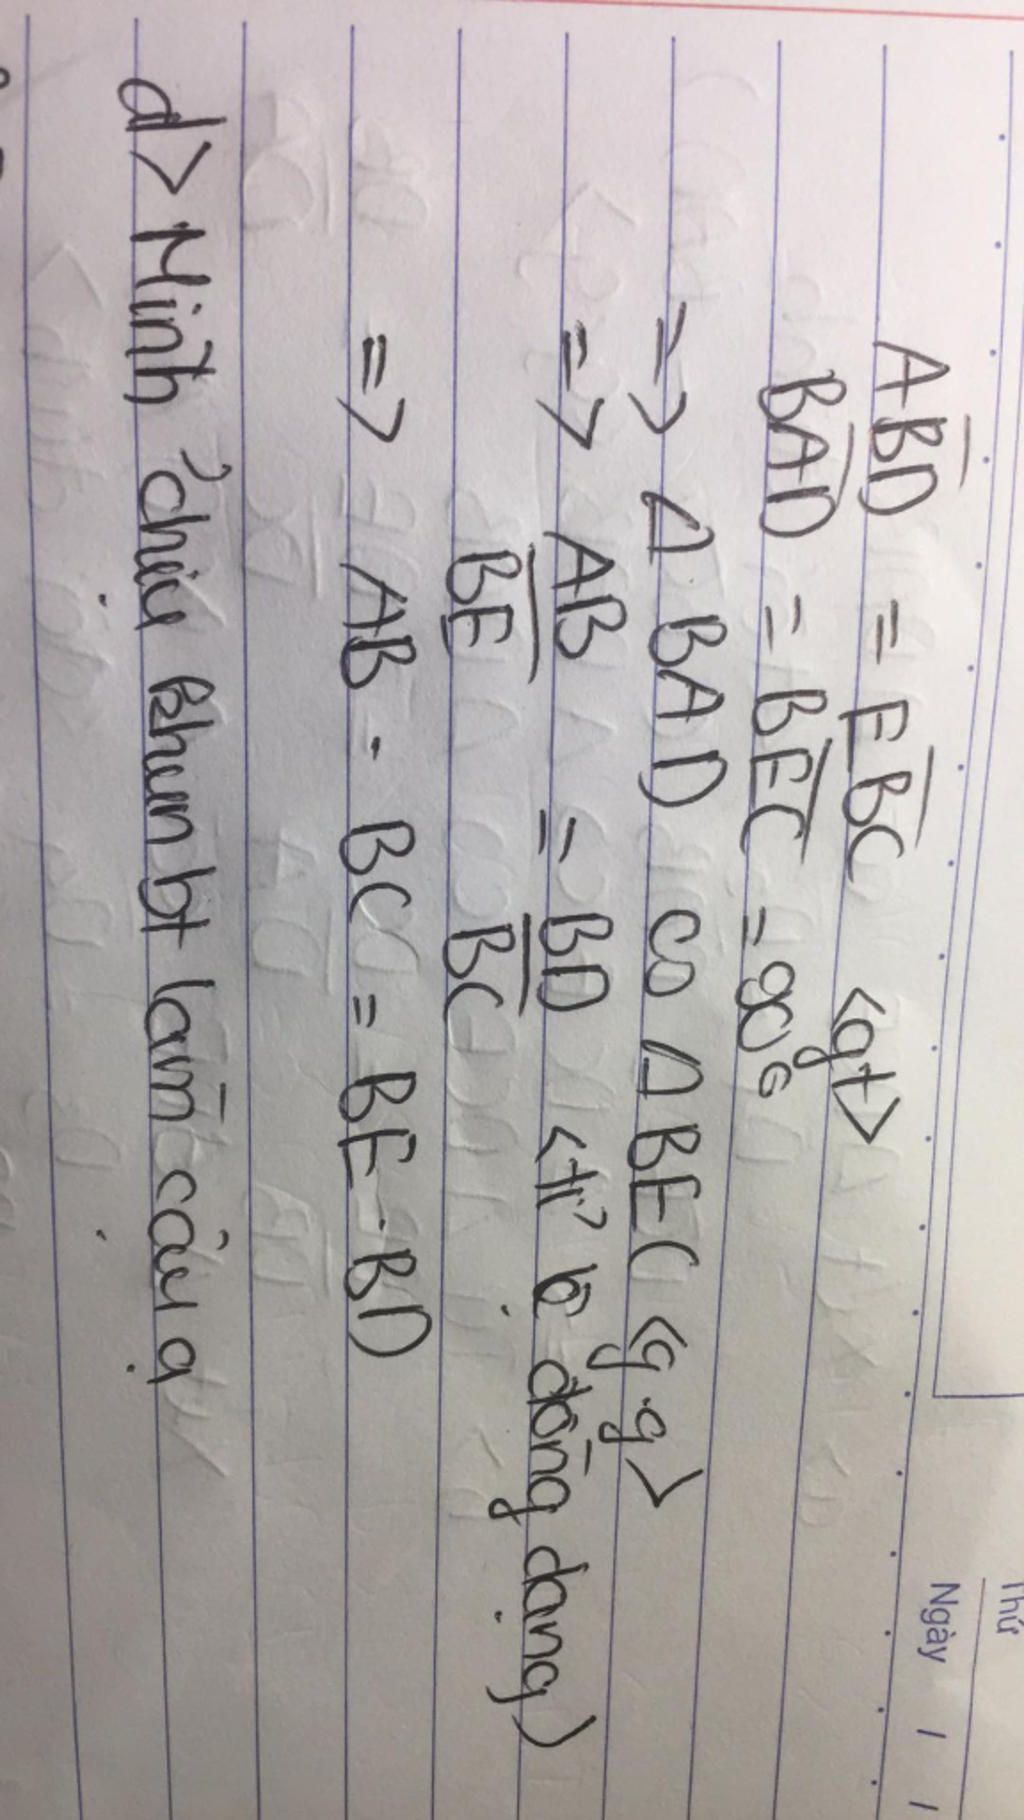 Thứ
Ngày / /
ABD = EBC <gt>
BAD = BEC = 90°
=> Δ BAD ∽ Δ BEC <g.g>
=> AB/BE = BD/BC <tỉ lệ đồng dạng>
=> AB . BC = BE . BD
d> Mình chịu khum bt làm câu ạ